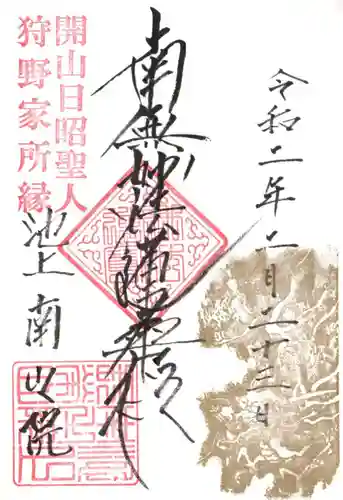 令和二年二月二十三日
南無妙法蓮華経
開山日昭聖人
狩野家所縁
池上南山院